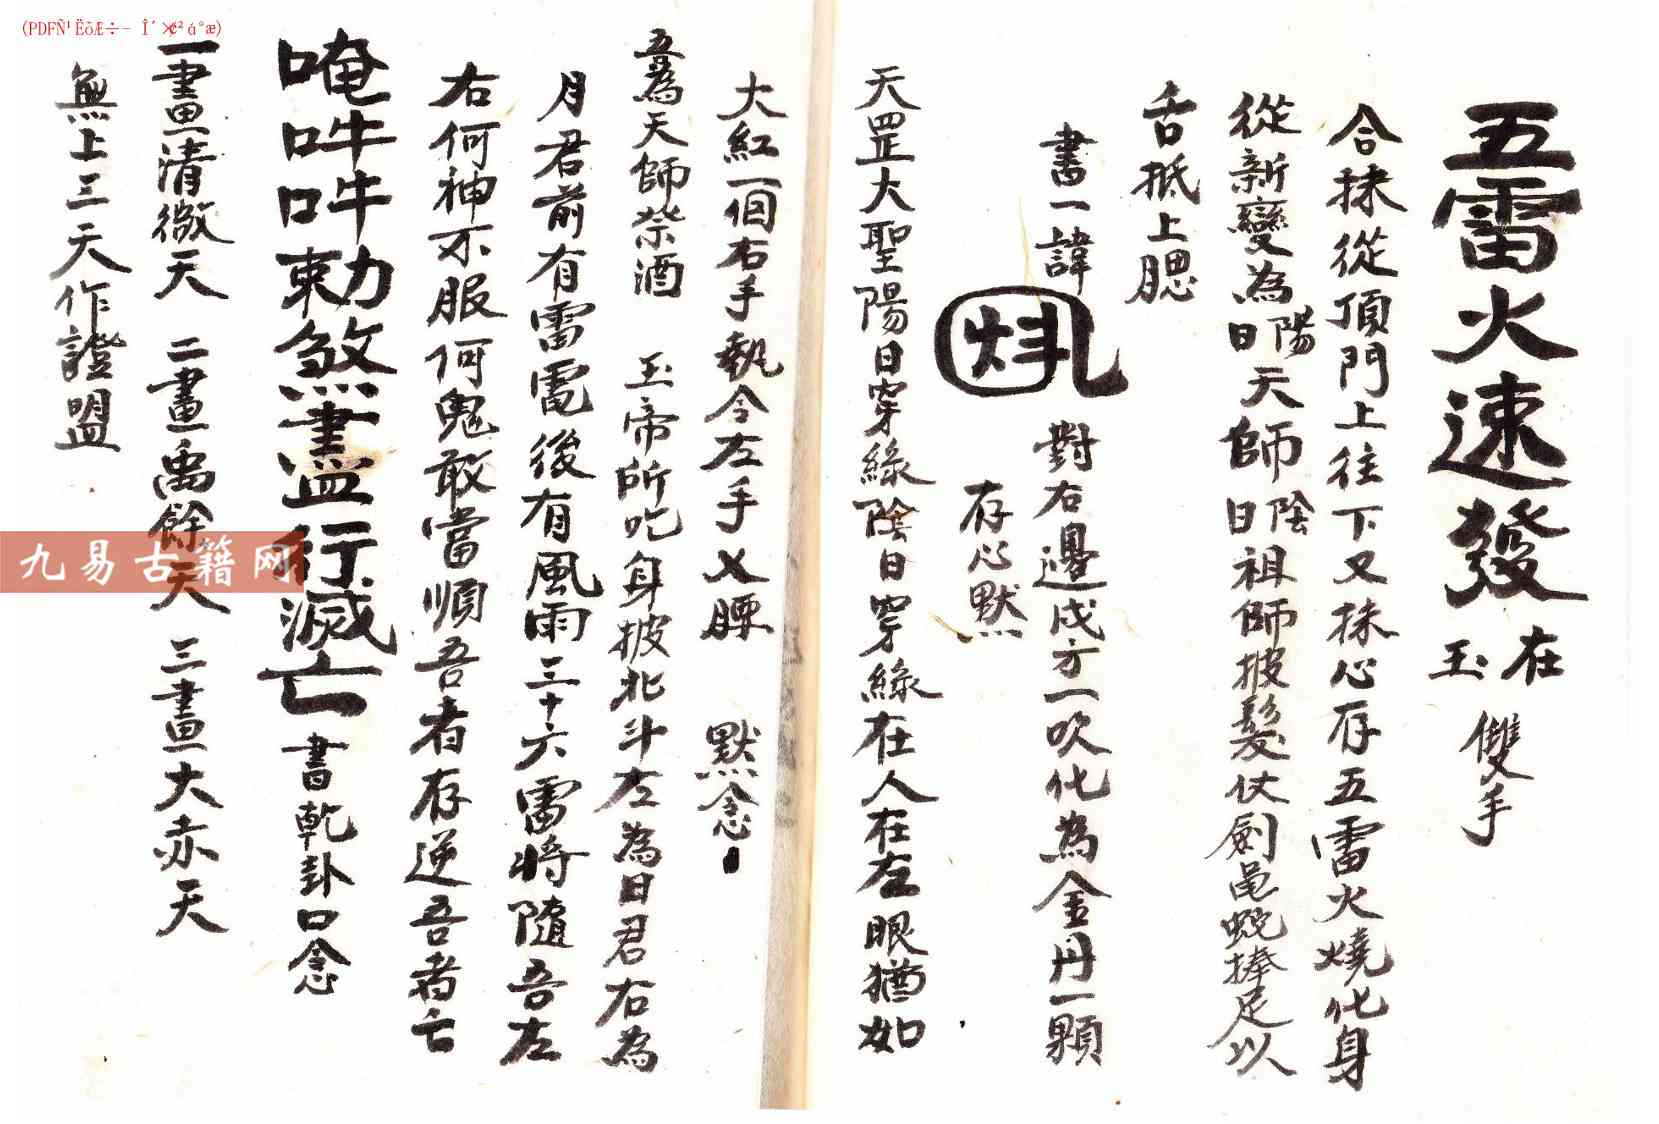 五雷火速發 在玉 雙手
合抹從頂門上往下又抹心存五雷火燒化身
從新變為陽日天師陰日祖師披髮仗劍黽蛇捧足以
舌抵上腮
書一諱 對右邊戌方一吹化為金丹一顆
存心默
天罡大聖陽日穿綠陰日穿綠在人在左眼猶如
大紅一個右手執令左手乂腰 默念
吾為天師祭酒 玉帝所吃身披北斗左為日君右為
月君前有雷電後有風雨三十六雷將隨吾左
右何神不服何鬼敢當順吾者存逆吾者亡
唵吽吽勅煞盡行滅亡 書乾卦口念
一畫清微天 二畫禹餘天 三畫大赤天
無上三天作證盟
九易古籍网
(PDFÑ¹ËõÆ÷- Î´×¢²á°æ)